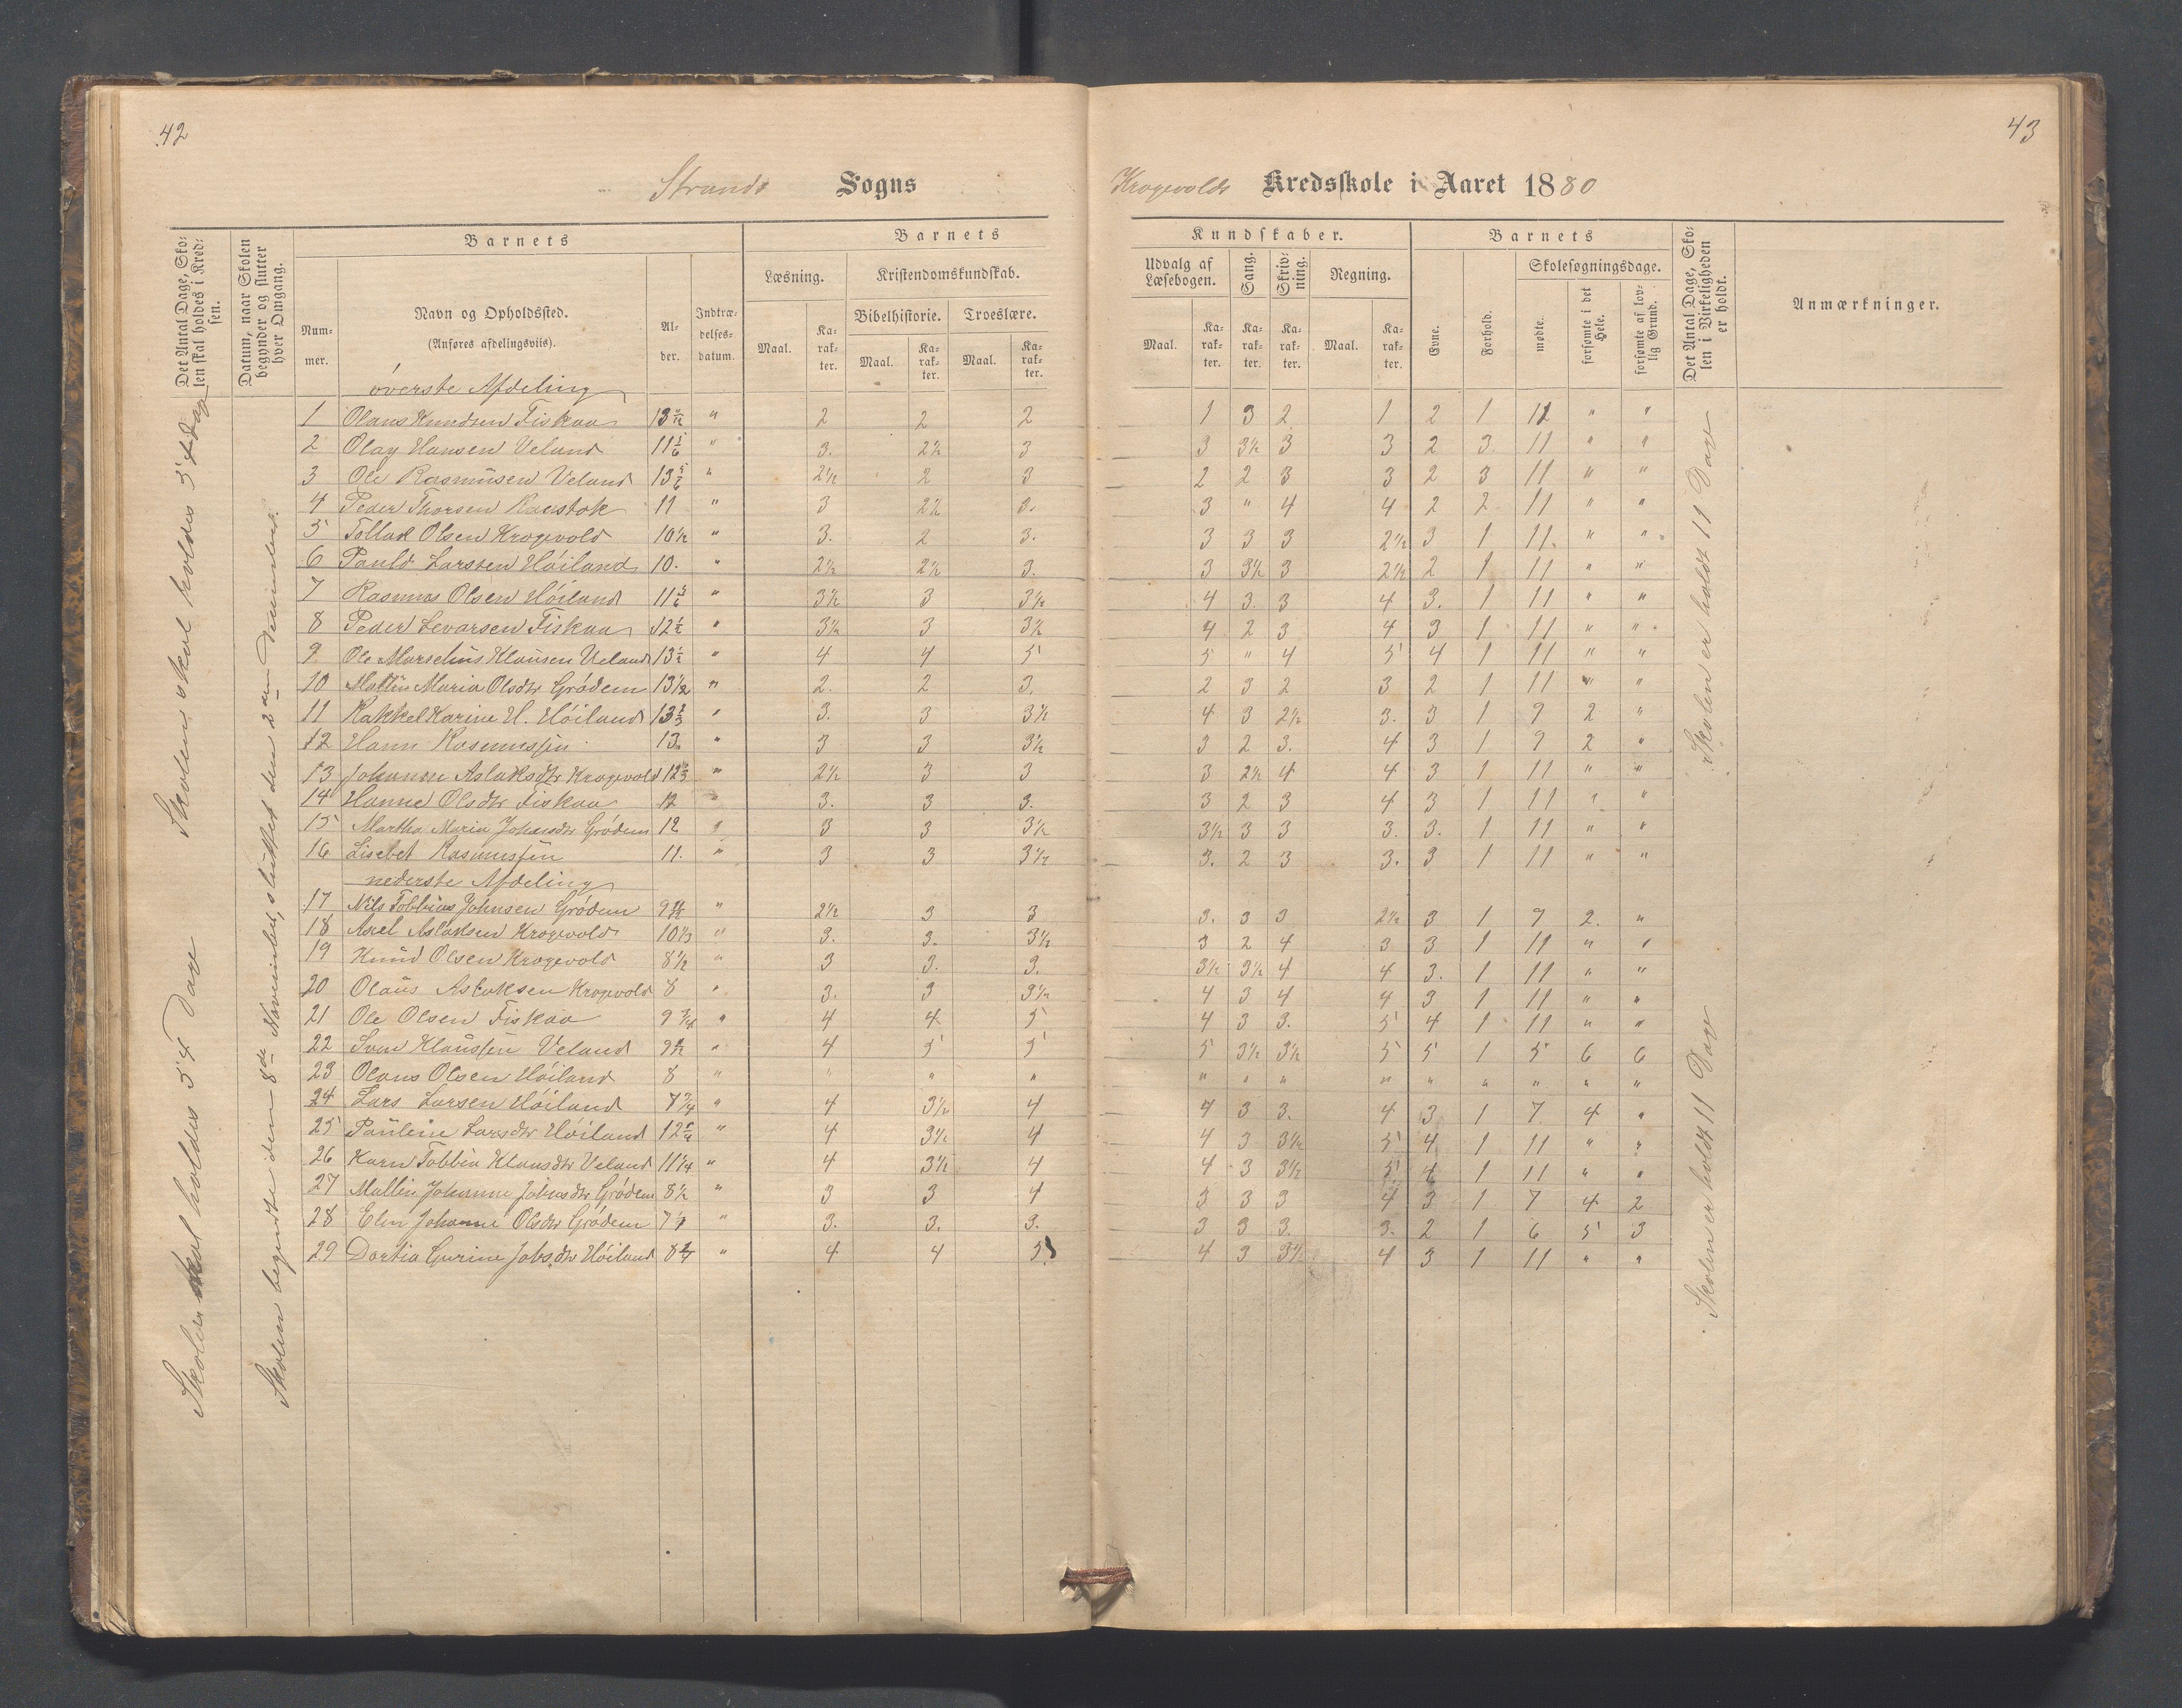 42
43
Strands Sogns
Krogevolds Kredsskole i Aaret 1880
Det Antal Dage, Skolen skal holdes i Kredsen.
Datum, naar Skolen begynder og slutter hver Omgang.
Barnets
Nummer.
Navn og Opholdssted.
(Anføres afdelingsviis).
Alder.
Indtrædelsesdatum.
Barnets
Læsning.
Kristendomskundskab.
Bibelhistorie. Troeslære.
Maal. Karakter. Maal. Karakter. Maal. Karakter.
Kundskaber.
Udvalg af Læsebogen. Sang. Skrivning. Regning.
Maal. Karakter. Karakter. Karakter. Maal. Karakter.
Barnets
Evne. Forhold.
Skolesøgningsdage.
mødte. forsømte i det Hele. forsømte af lovlig Grund.
Det Antal Dage, Skolen i Virkeligheden er holdt.
Anmærkninger.
Skolen skal holdes 54 Dage
Skolen skal holdes 54 Dage
Skolen begyndte den 8de November, sluttet den 2den
øverste Afdeling
1 Olaus Knudsen Fiskaa 13 " 2 2 2 1 3 2 1 2 1 11 " "
2 Olay Hansen Veland 11 1/6 " 3. 2½ 3 3 3½ 3 3 2 3. 11 " "
3 Ole Rasmusen Veland 13 5/6 " 2½ 2 3 2 2 3 3 2 3 11 " "
4 Peder Thorsen Raustok 11 " 3 2½ 3. 3 " 4 4 2 2 11 " "
5 Tollak Olsen Krogevold 10½ " 3. 2 3. 3 3 3 2½ 3 1 11. " "
6 Pauld Larsen Høiland 10. " 2½ 2½ 3. 3 3½ 3 2½ 2 1 11 " "
7 Rasmus Olsen Høiland 11 5/6 " 3½ 3 3½ 4 3. 3 4 3. 1 11 " "
8 Peder Levarsen Fiskaa 12½ " 3½ 3 3½ 4 2 3 4 3 1 11 " "
9 Ole Marselius Klausen Veland 13½ " 4 4 5 5 " 4 5 4 1 11 " "
10 Mallin Maria Olsdtr Grødem 13½ " 2. 2 3. 2 3 2 3 2 1 11 " "
11 Rakkel Karine H. Høiland 13⅔ " 3. 3 3½ 4 3 2½ 3. 3 1 9 2 "
12 Hann Rasmussen 13. " 3 3 3½ 3 2 3. 4 3 1 9 2 "
13 Johanne Aslaksdtr Krogevold 12⅔ " 2½ 3 3 3 2½ 4 4 3 1 11 " "
14 Hanne Olsdtr Fiskaa 12 " 3. 3 3. 3 2 3 4 3 1 11 " "
15 Martha Maria Johansdtr Grødem 12 " 3 3 3½ 3½ 3 3 3. 3. 1 11 " "
16 Lisebet Rasmussen 11. " 3 3 3½ 3. 2 3 3. 3 1 11 " "
nederste Afdeling
17 Nils Tobbias Johnsen Grødem 9 " 2½ 3 3 3. 3 3 2½ 3 1 9 2. "
18 Axel Aslaksen Krogevold 10⅓ " 3. 3. 3½ 3 2 4 3 3 1 11 " "
19 Knud Olsen Krogevold 8½ " 3 3. 3. 3½ 3½ 4 4 3. 1 11 " "
20 Olaus Aslaksen Krogevold 8 " 3. 3 3½ 4 3 4 4 3 1 11 " "
21 Ole Olsen Fiskaa 9¾ " 4 4 5 4 3 3. 5 4 1 11 " "
22 Sven Klaussen Veland 9½ " 4 5 5 5 3½ 3½ 5 5 1 5 6 6
23 Olaus Olsen Høiland 8 " " " " " " " " " " " " "
24 Lars Larsen Høiland 7¾ " 4 3½ 4 4 3 3. 4 3 1 7 4 "
25 Pauline Larsdtr Høiland 12 " 4 3½ 4 4 3 3½ 5 4 1 11 " "
26 Karn Tobbia Klausdtr Veland 11¼ " 4 3½ 4 4 3 3½ 5 4 1 11 " "
27 Mallin Johanne Johnsdtr Grødem 8½ " 3 3 4 3 3 3 4 3 1 7 4 2
28 Elen Johanne Olsdtr Grødem 7½ " 3. 3. 3. 3 3 3. 3. 2 1 6 5 3
29 Dortia Gurine Jobsdtr Høiland 8¾ " 4 4 5 4 3 3½ 4 3 1 11 " "
Skolen er holdt 11 Dage
Skolen er holdt 11 Dage